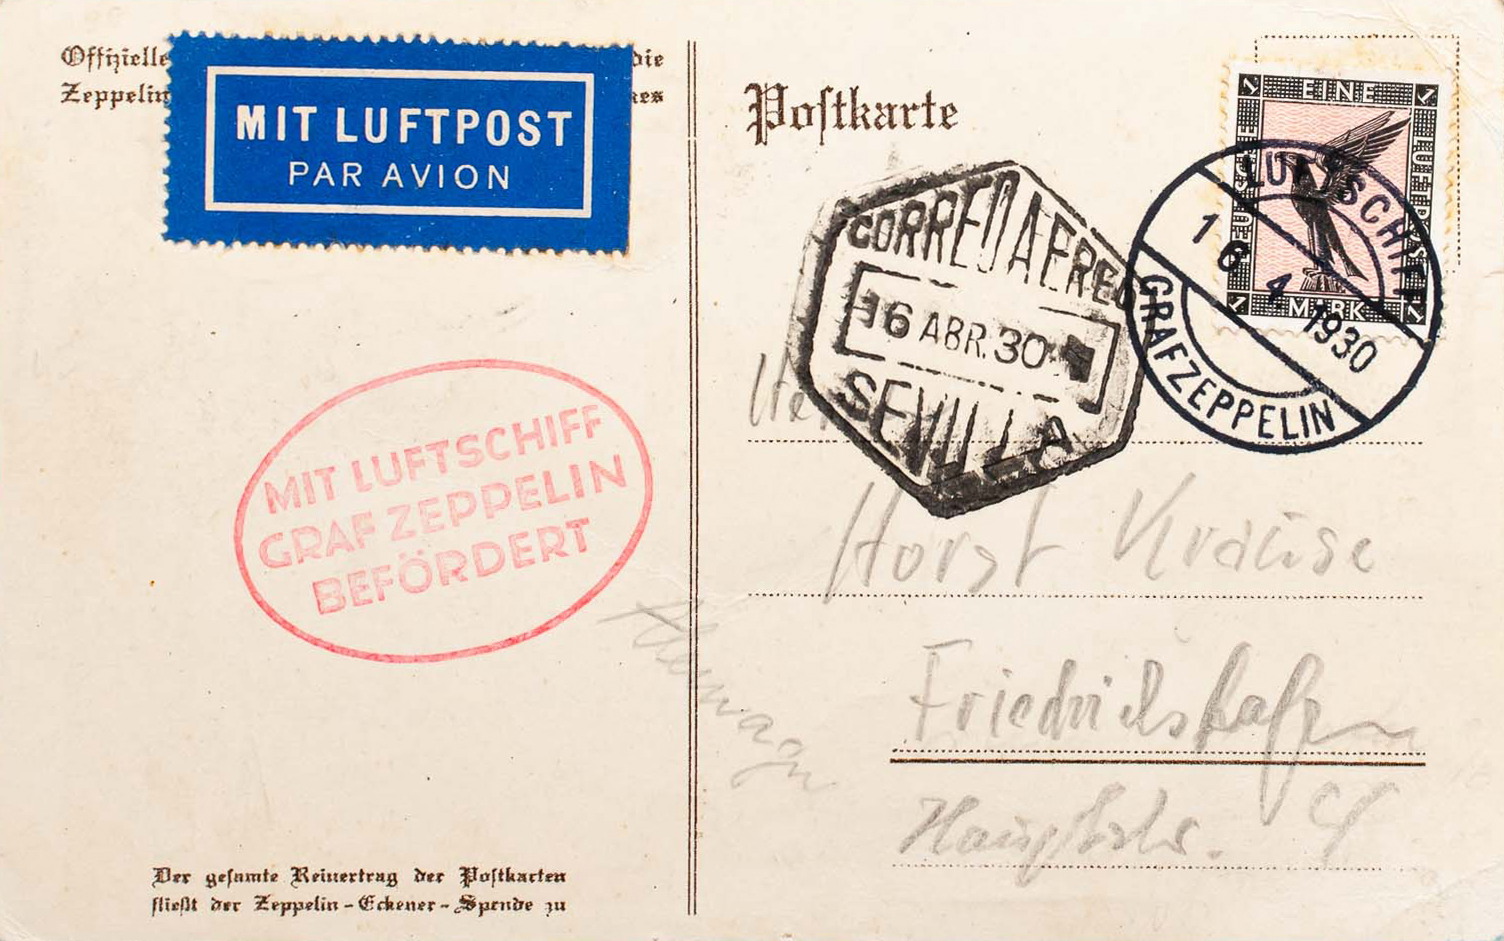 Offizielle die
Zeppelin
MIT LUFTPOST
PAR AVION
MIT LUFTSCHIFF
GRAF ZEPPELIN
BEFÖRDERT
Der gesamte Reinertrag der Postkarten
fließt der Zeppelin-Eckener-Spende zu
Postkarte
1 EINE 1
DEUTSCHE
LUFTPOST
1 MARK 1
LUFTSCHIFF
16 4 1930
GRAF ZEPPELIN
CORREO AEREO
16 ABR. 30
SEVILLA
Horst Krause
Friedrichshafen
Hauptstr.